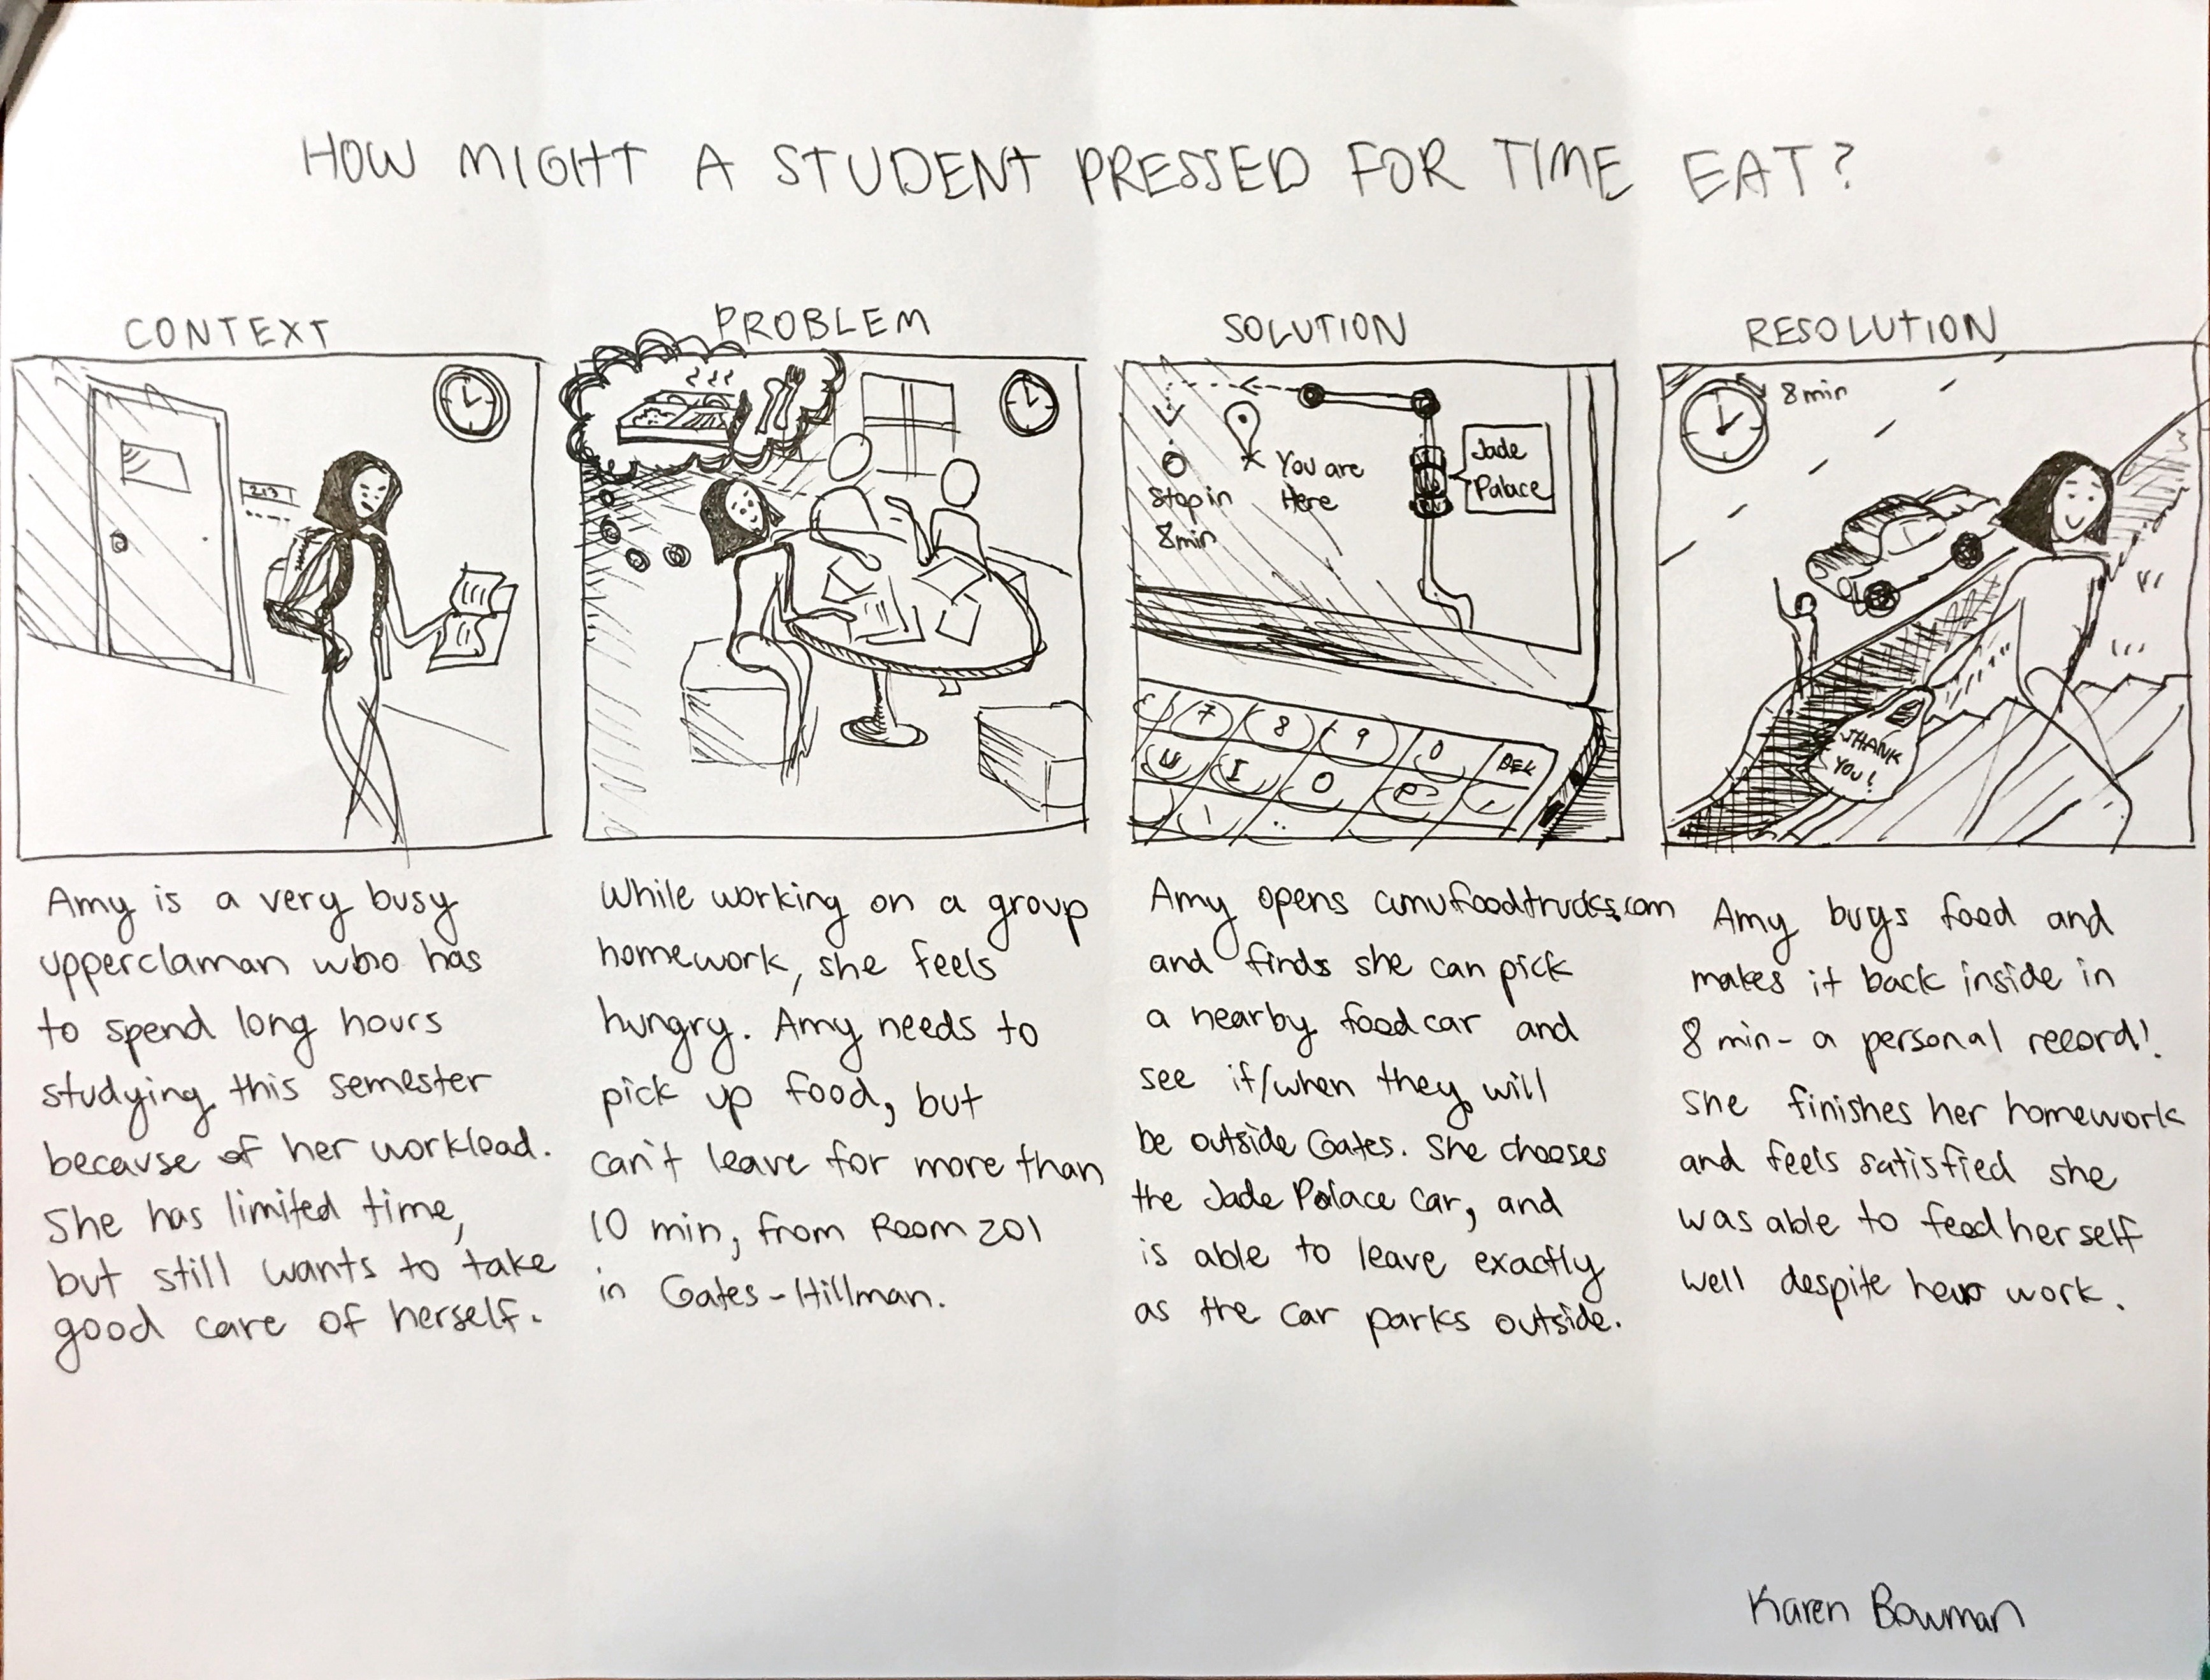 HOW MIGHT A STUDENT PRESSED FOR TIME EAT?
CONTEXT
213
Amy is a very busy
upperclaman who has
to spend long hours
studying this semester
because of her workload.
She has limited time,
but still wants to take
good care of herself.
PROBLEM
While working on a group
homework, she feels
hungry. Amy needs to
pick up food, but
can't leave for more than
10 min, from Room 201
in Gates-Hillman.
SOLUTION
Jade
Palace
You are
Here
Stop in
8 min
7 8 9 0 DEL
U I O P
Amy opens cmufoodtrucks.com
and finds she can pick
a nearby food car and
see if/when they will
be outside Gates. She chooses
the Jade Palace car, and
is able to leave exactly
as the car parks outside.
RESOLUTION
8 min
THANK
YOU!
Amy buys food and
makes it back inside in
8 min- a personal record!
She finishes her homework
and feels satisfied she
was able to feed herself
well despite her work.
Karen Bowman